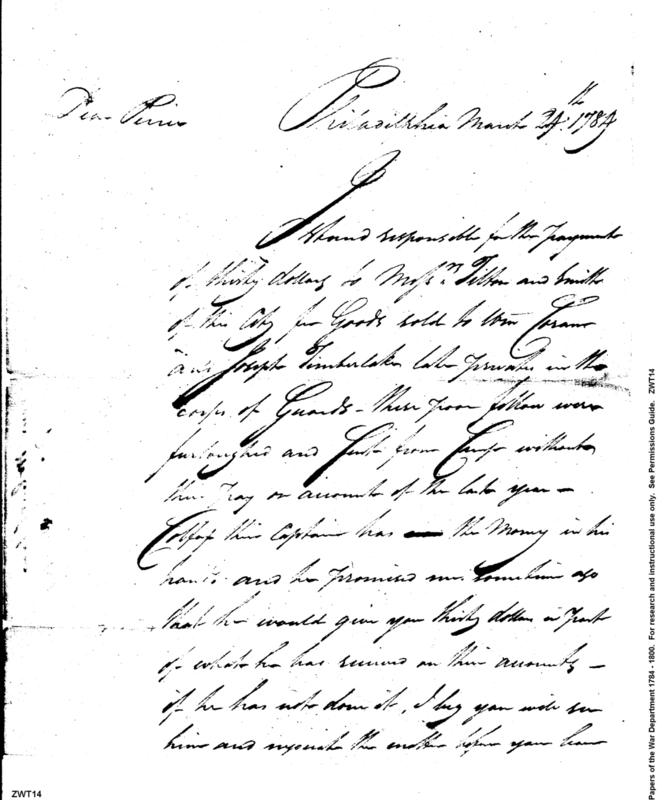 Dear Pierce
Philadelphia March 24th. 1784
I stand responsible for the payment
of thirty dollars to Messrs Tilton and Smith
of this City for Goods sold to Wm Coram
and Joseph Timberlake late privates in the
corps of Guards - these poor fellow were
furloughed and sent from Camp without
their pay on account of the last year -
Colfax their Captain has the Money in his
hands and he promised me sometime ago
that he would give you thirty dollars in part
of what he has received on their accounts -
if he has not done it, I beg you will see
him and negociate the matter before you leave
ZWT14
Papers of the War Department 1784 - 1800. For research and instructional use only. See Permissions Guide. ZWT14